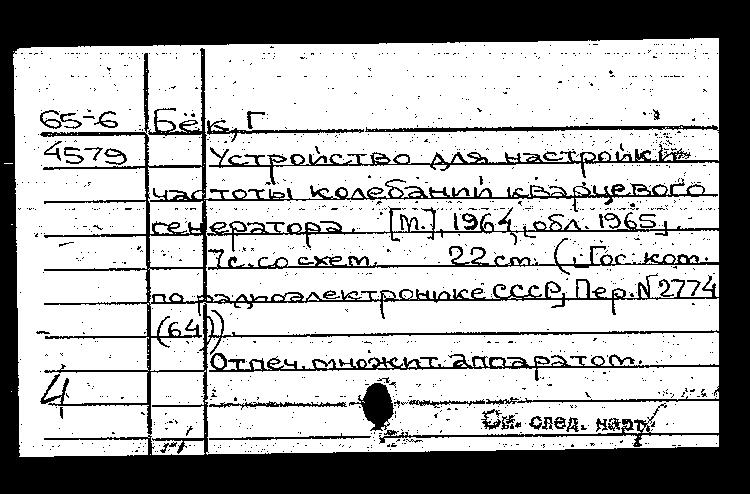 65-6 Бёк, Г
4579 Устройство для настройки
частоты колебаний кварцевого
генератора. [М.], 1964, [обл. 1965].
7 с. со схем. 22 см. ([Гос. ком.
по радиоэлектронике СССР], Пер. N 2774
(64)).
Отпеч. множит. аппаратом.
4
См. след. карт.